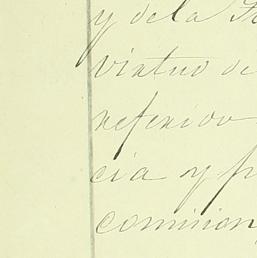 y dela
virtud de
referido
cia y
comision